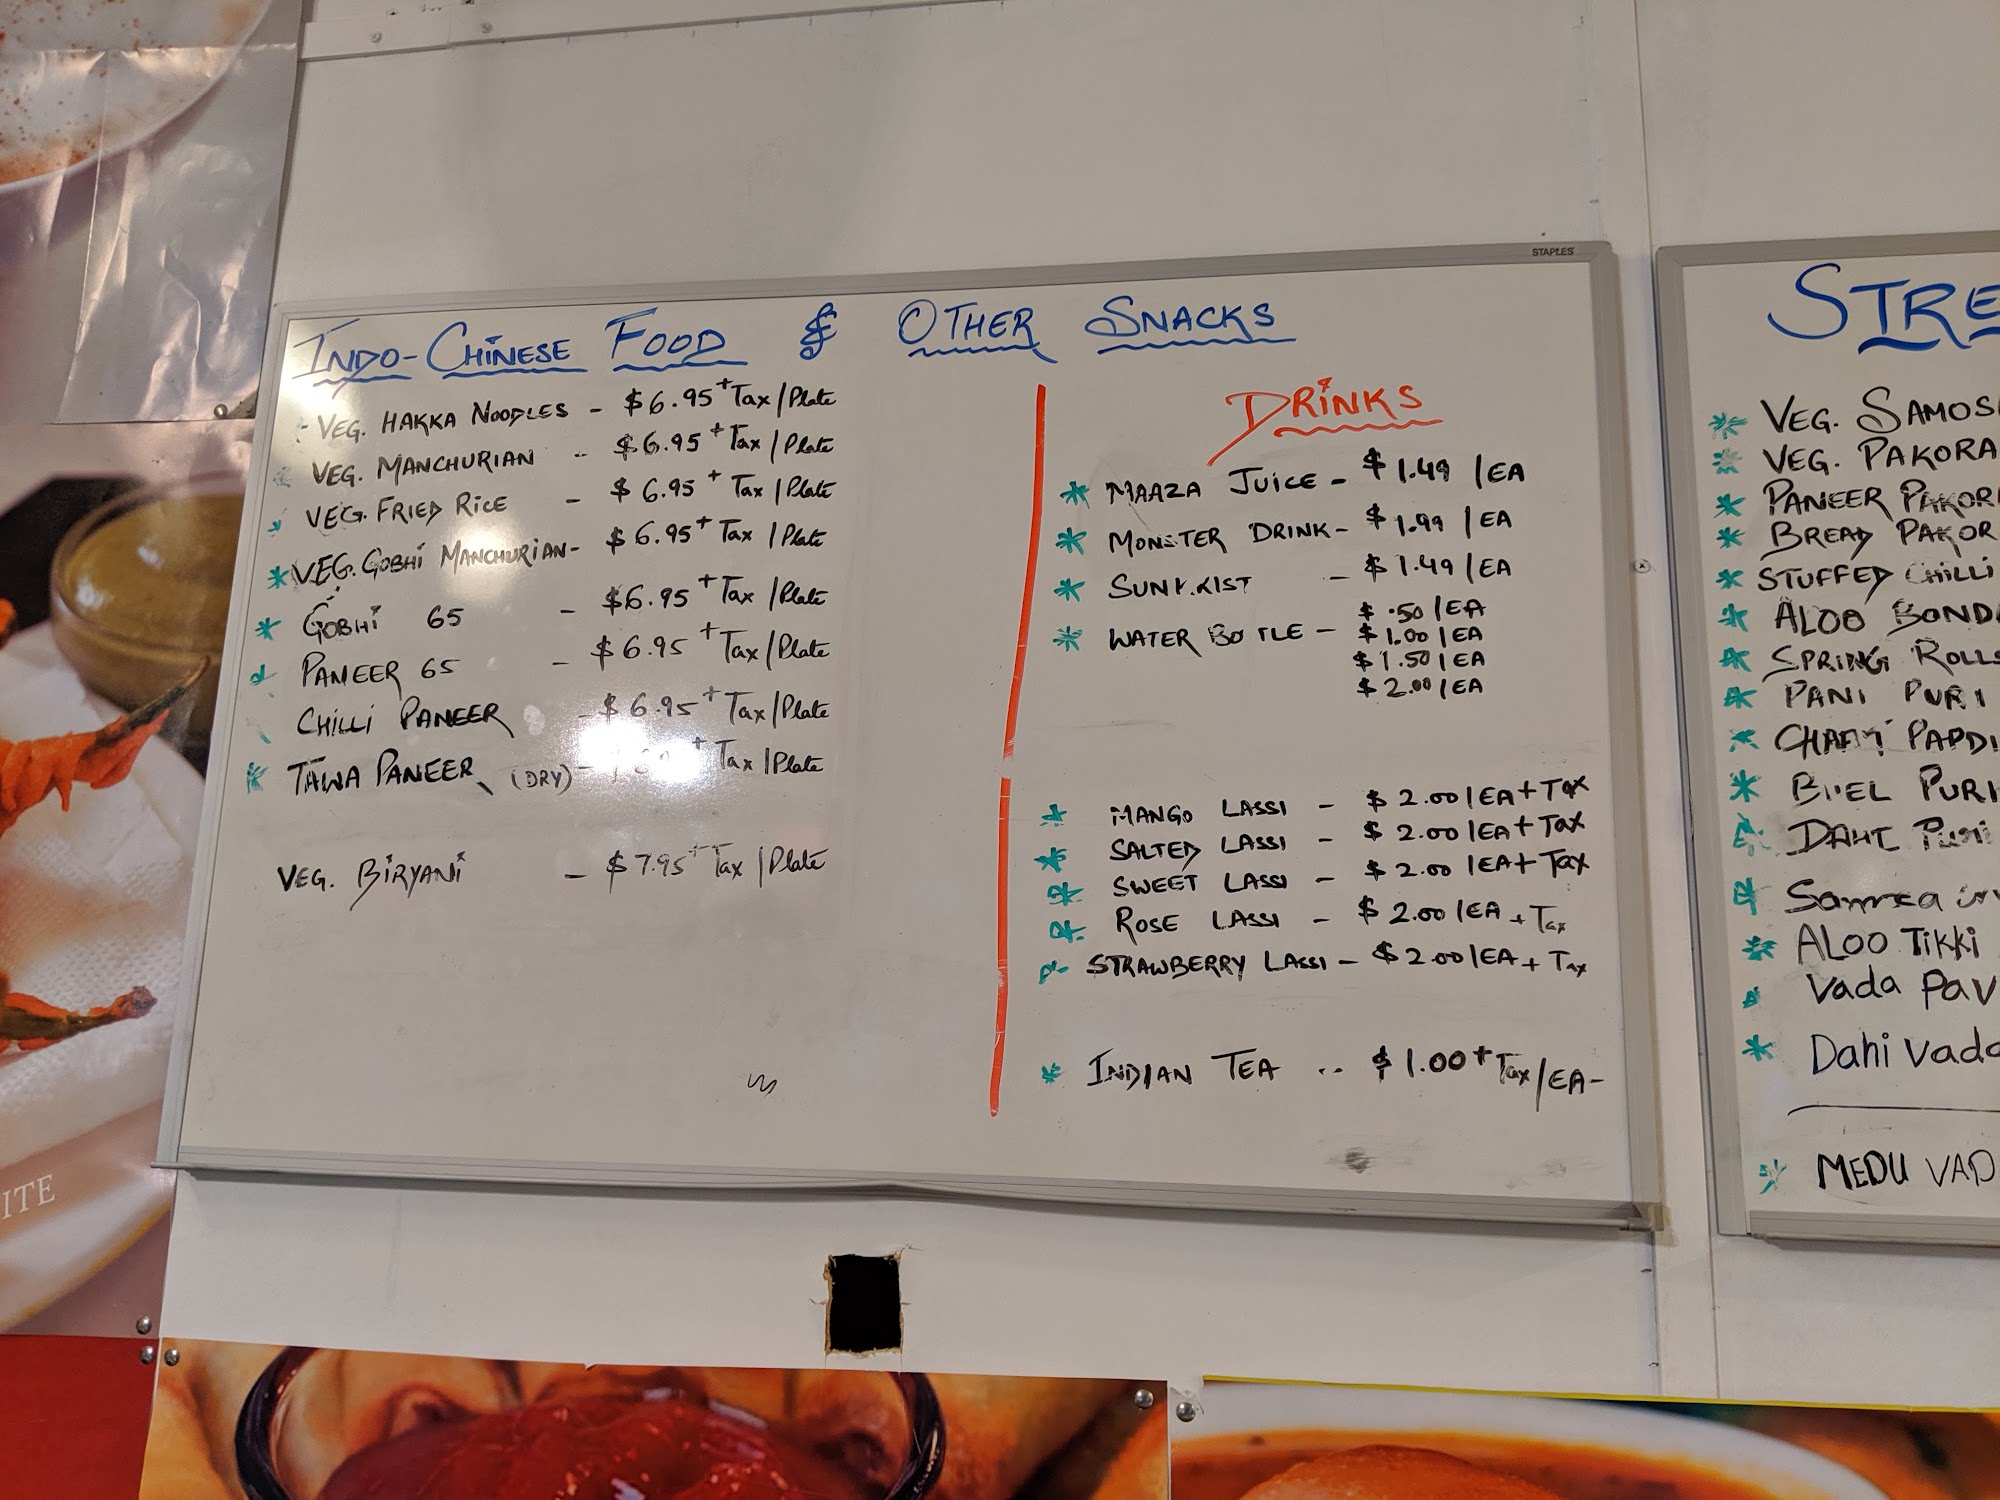 STAPLES
INDO-CHINESE FOOD & OTHER SNACKS
VEG. HAKKA NOODLES - $6.95 + Tax/Plate
VEG. MANCHURIAN - $6.95 + Tax/Plate
VEG. FRIED RICE - $6.95 + Tax/Plate
* VEG. GOBHI MANCHURIAN - $6.95 + Tax/Plate
* GOBHI 65 - $6.95 + Tax/Plate
PANEER 65 - $6.95 + Tax/Plate
CHILLI PANEER - $6.95 + Tax/Plate
* TAWA PANEER (DRY) - + Tax/Plate
VEG. BIRYANI - $7.95 + Tax/Plate
DRINKS
* MAAZA JUICE - $1.49/EA
* MONSTER DRINK - $1.99/EA
* SUNKIST - $1.49/EA
* WATER BOTTLE - $.50/EA
$1.00/EA
$1.50/EA
$2.00/EA
* MANGO LASSI - $2.00/EA + Tax
* SALTED LASSI - $2.00/EA + Tax
* SWEET LASSI - $2.00/EA + Tax
* ROSE LASSI - $2.00/EA + Tax
* STRAWBERRY LASSI - $2.00/EA + Tax
* INDIAN TEA - $1.00 + Tax/EA-
STRE
* VEG. SAMOS
* VEG. PAKORA
* PANEER PAKOR
* BREAD PAKOR
* STUFFED CHILLI
* ALOO BOND
* SPRING ROLLS
* PANI PURI
* PAPDI
* PURI
* DAHI Puri
* ALOO TIKKI
Vada Pav
* Dahi Vada
* MEDU VAD
ITE